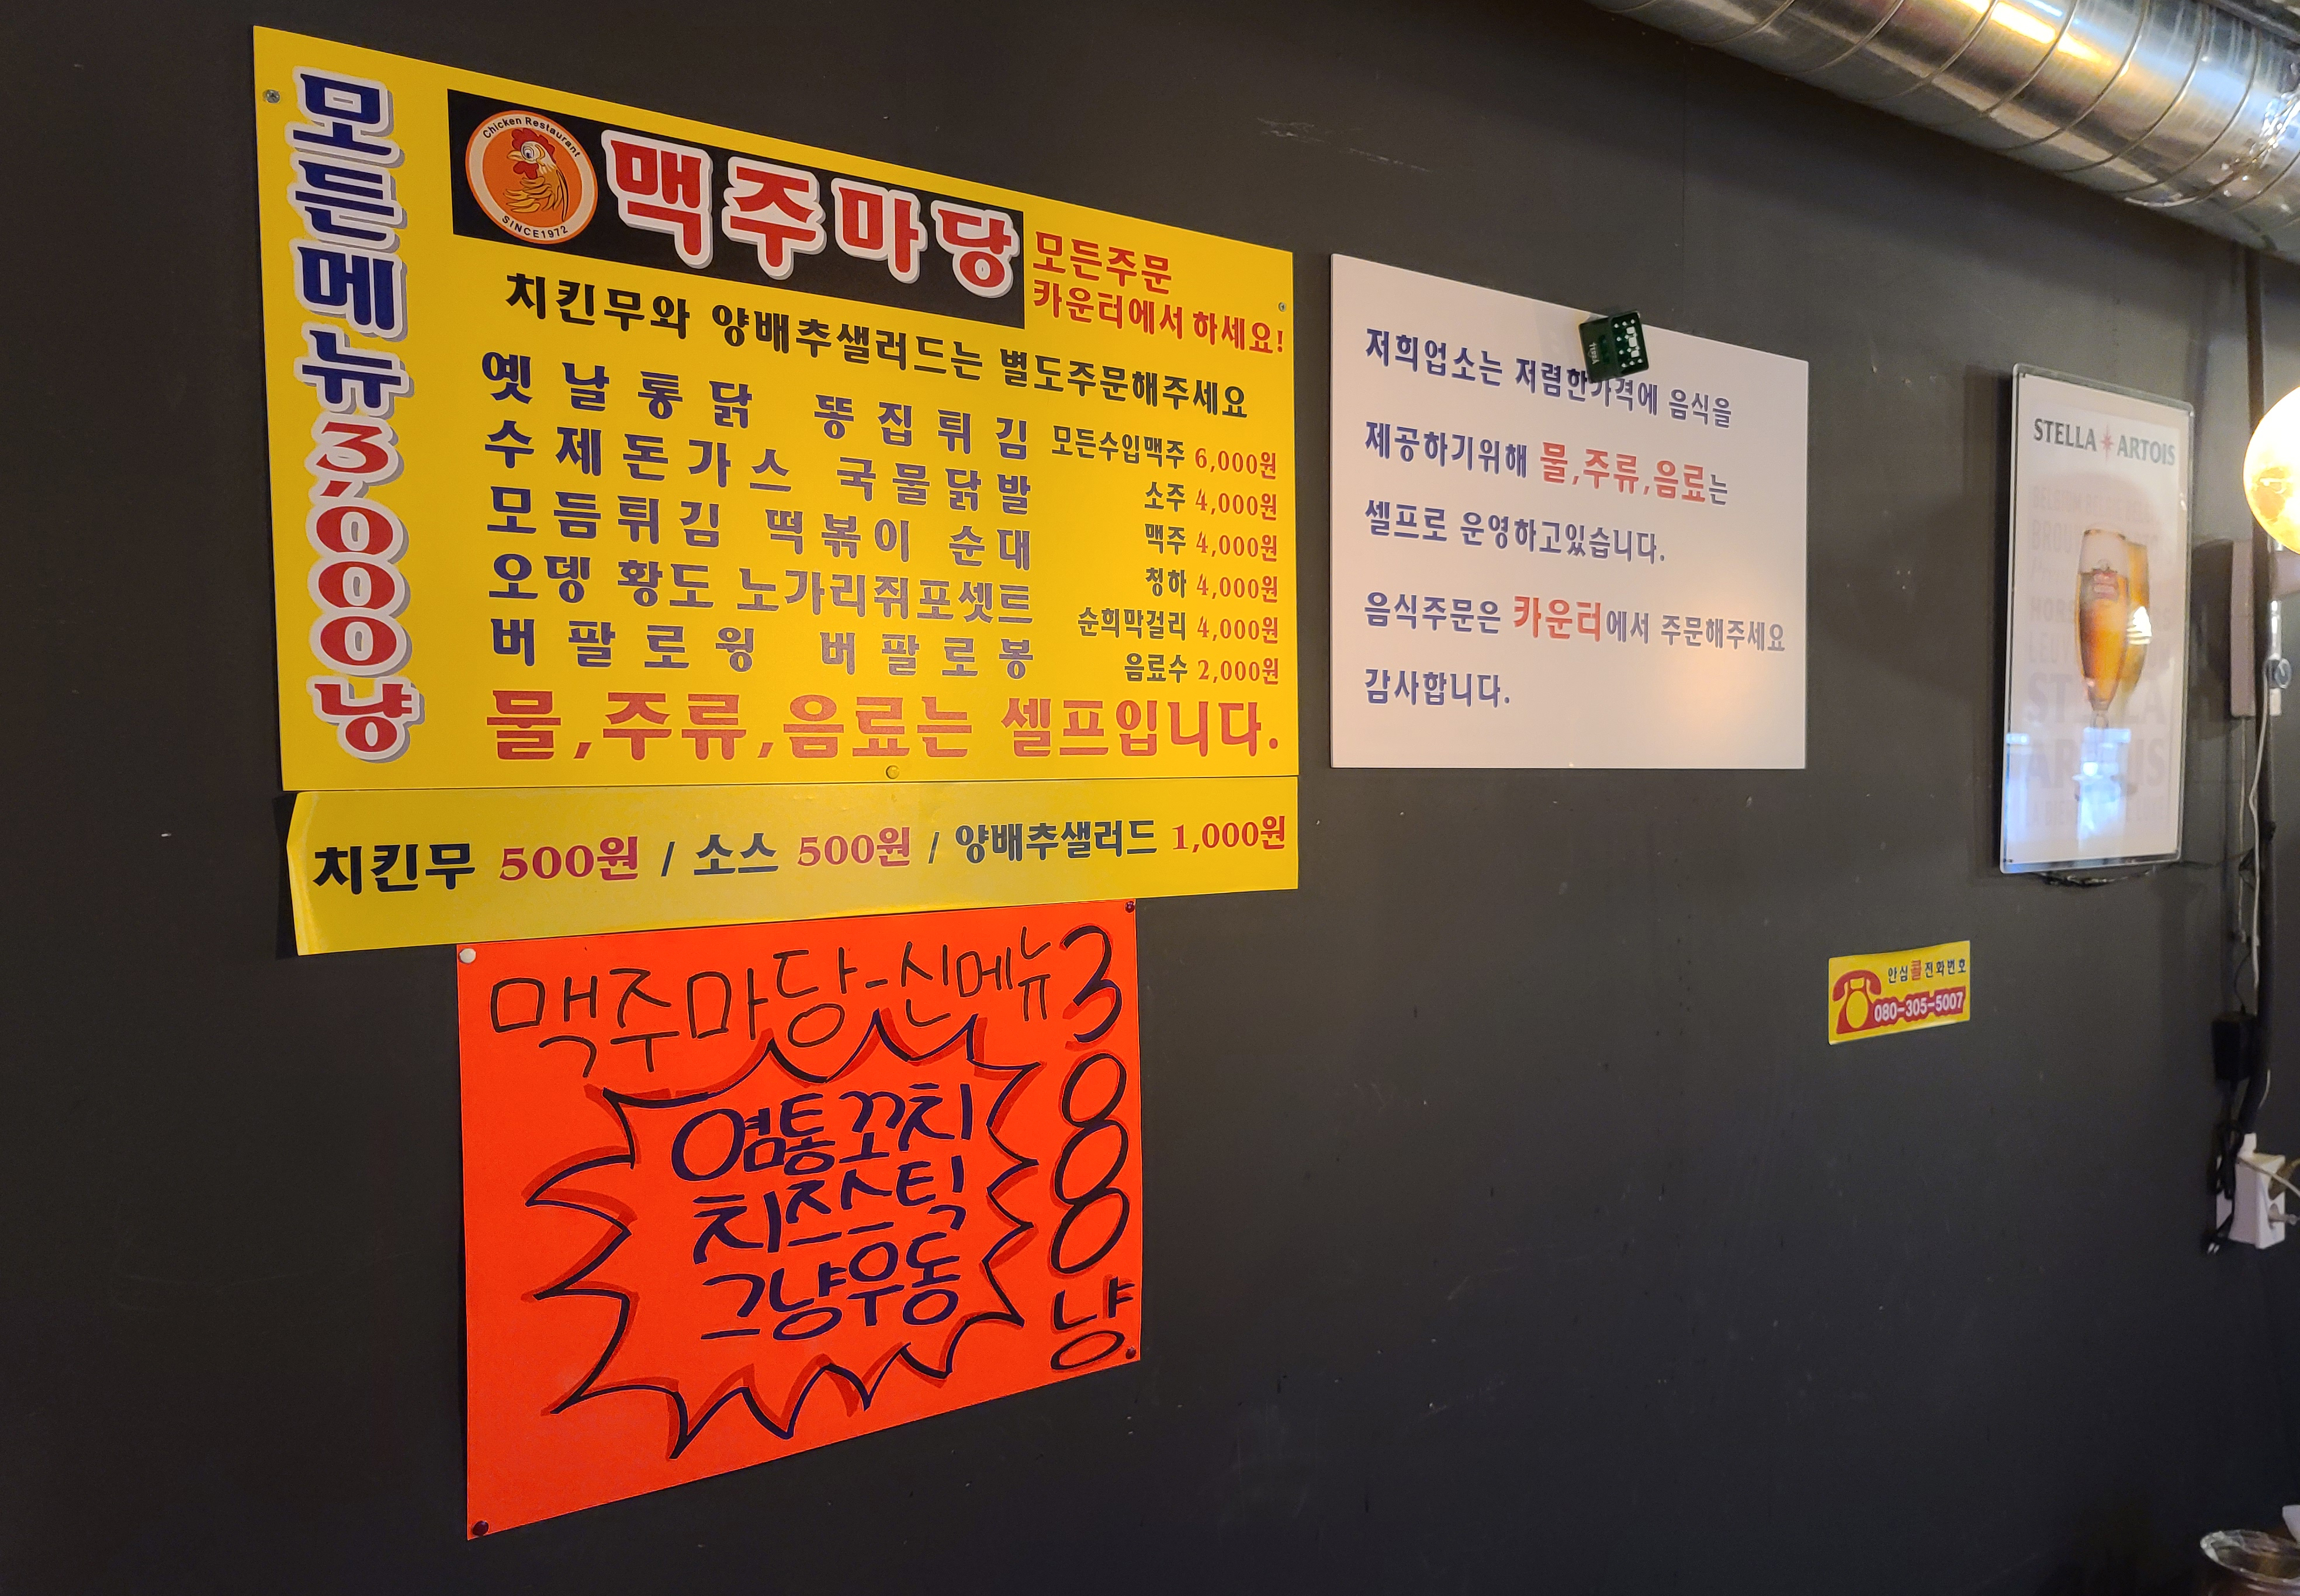 모든메뉴3,000냥
Chicken Restaurant
SINCE1972
맥주마당
모든주문
카운터에서 하세요!
치킨무와 양배추샐러드는 별도주문해주세요
옛날통닭 똥집튀김
수제돈가스 국물닭발
모듬튀김 떡볶이 순대
오뎅 황도 노가리쥐포셋트
버팔로윙 버팔로봉
모든수입맥주 6,000원
소주 4,000원
맥주 4,000원
청하 4,000원
순희막걸리 4,000원
음료수 2,000원
물,주류,음료는 셀프입니다.
치킨무 500원 / 소스 500원 / 양배추샐러드 1,000원
맥주마당-신메뉴
3000냥
염통꼬치
치즈스틱
그냥우동
저희업소는 저렴한가격에 음식을
제공하기위해 물,주류,음료는
셀프로 운영하고있습니다.
음식주문은 카운터에서 주문해주세요
감사합니다.
STELLA ARTOIS
안심콜전화번호
080-305-5007